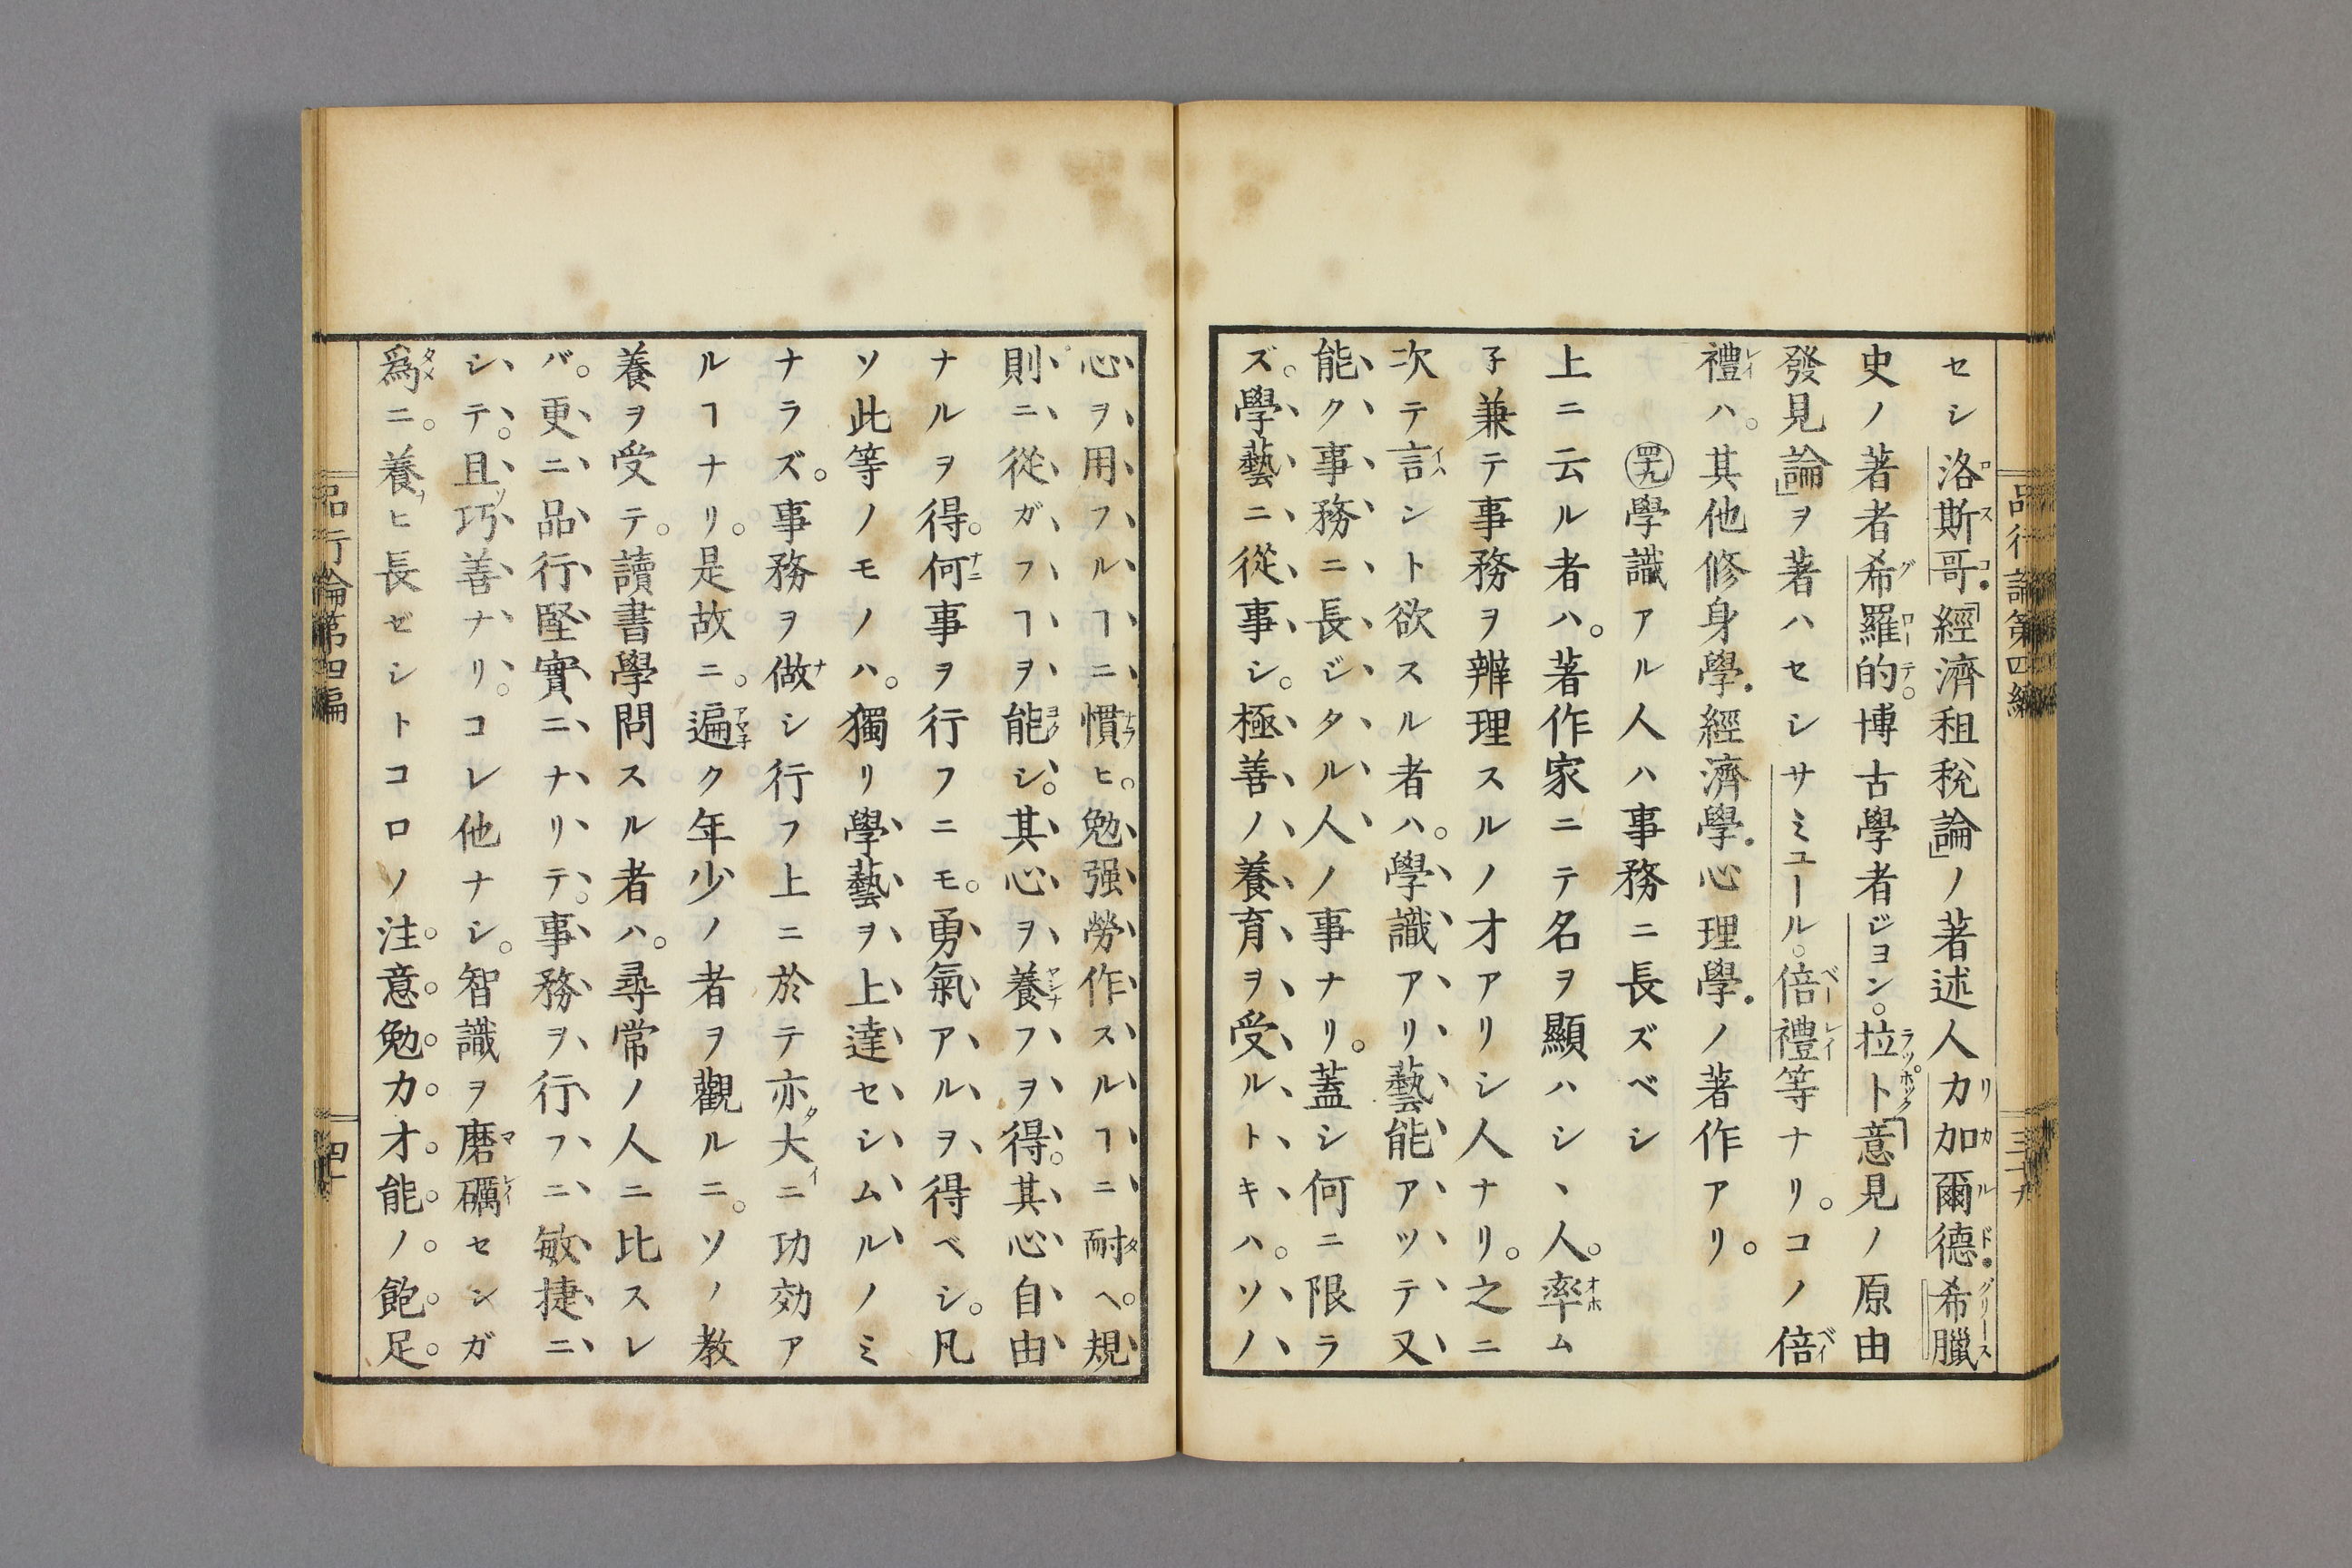 品行論第四編
セシ洛斯哥●「經濟租税論」ノ著述人力加爾德●希臘
史ノ著者希羅的。博古學者ジヨン。拉ト「意見ノ原由
發見論」ヲ著ハセシサミユール。倍禮等ナリ。コノ倍
禮ハ。其他修身學●經濟學●心理學●ノ著作アリ。
㊾學識アル人ハ事務ニ長ズベシ
上ニ云ル者ハ。著作家ニテ名ヲ顯ハシヽ人。率ム
子兼テ事務ヲ辨理スルノオアリシ人ナリ。之ニ
次テ言ント欲スル者ハ。學識アリ藝能アツテ又
能ク事務ニ長ジタル人ノ事ナリ。蓋シ何ニ限ラ
ズ。學藝ニ從事シ。極善ノ養育ヲ受ルトキハ。ソノ
心ヲ用フルヿニ慣ヒ。勉强勞作スルヿニ耐ヘ。規
則ニ從ガフヿヲ能シ。其心ヲ養フヲ得。其心自由
ナルヲ得。何事ヲ行フニモ。勇氣アルヲ得ベシ。凡
ソ此等ノモノハ。獨リ學藝ヲ上達セシムルノミ
ナラズ。事務ヲ做シ行フ上ニ於テ亦大ニ功効ア
ルヿナリ。是故ニ。遍ク年少ノ者ヲ觀ルニ。ソノ教
養ヲ受テ。讀書學問スル者ハ。尋常ノ人ニ比スレ
バ。更ニ品行堅實ニナリテ。事務ヲ行フニ敏捷ニ
シテ。且巧善ナリ。コレ他ナシ。智識ヲ磨礪センガ
爲ニ。養ヒ長ゼシトコロノ注意勉力才能ノ飽足
品行論第四編
四十